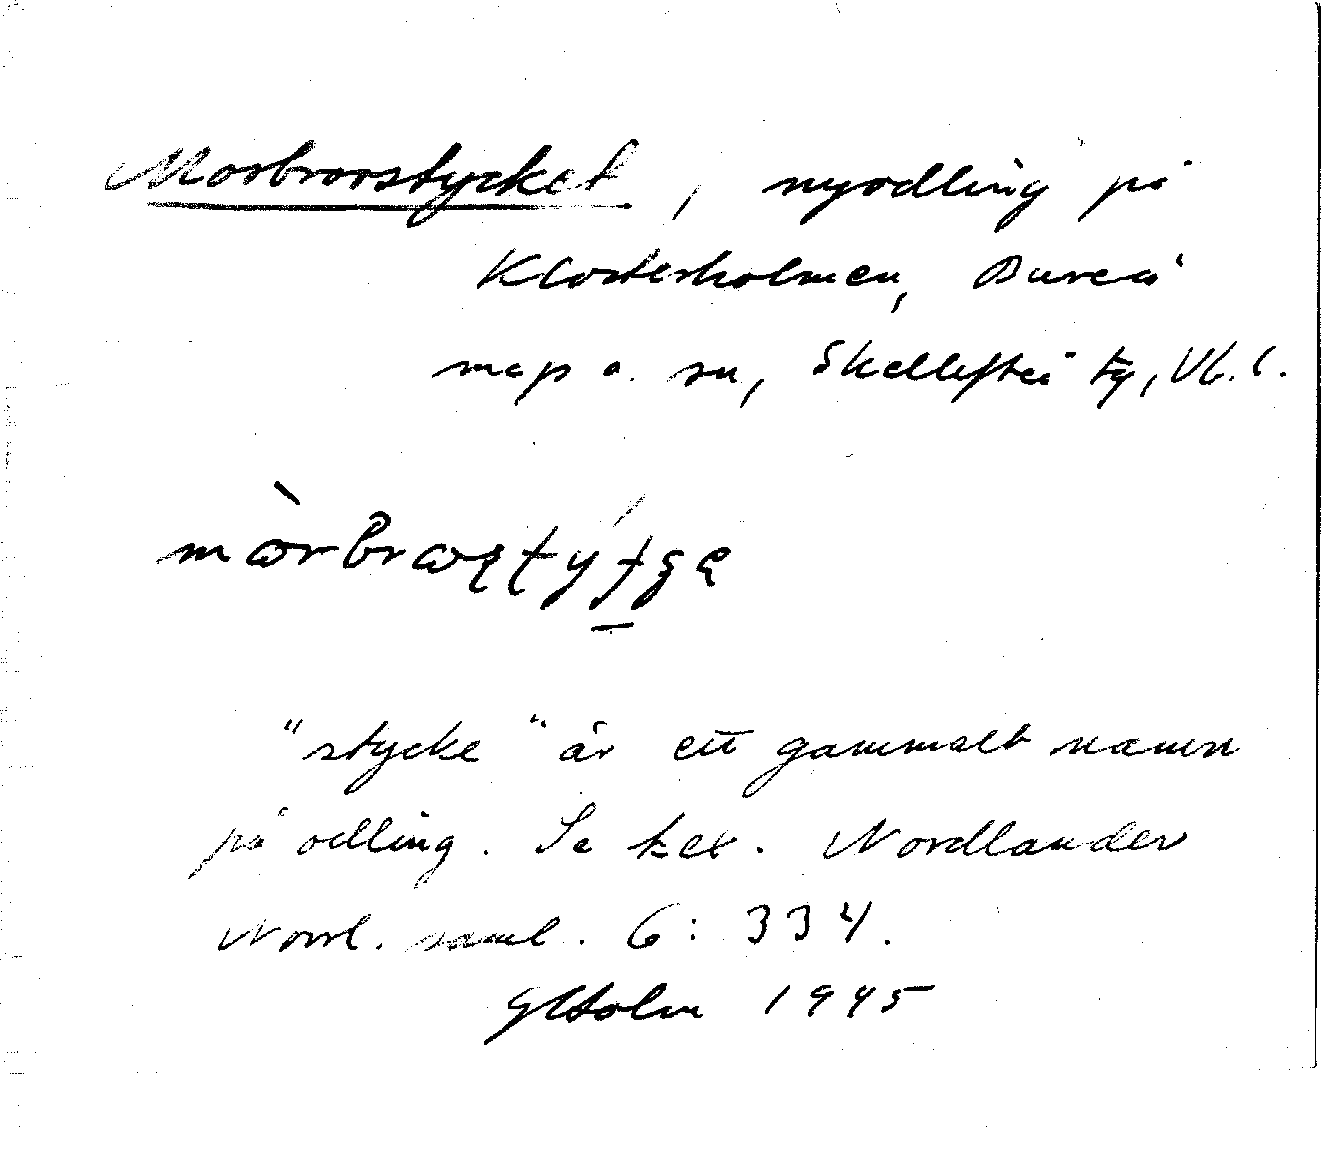 Morbrorstycket, nyodling på
Klosterholmen, Bureå
mcp o. sn, Skellefteå tg, Vb. l.
"stycke" är ett gammalt namn
på odling. Se t.ex. Nordlander
Norrl. saml. 6: 334.
GHolm 1945